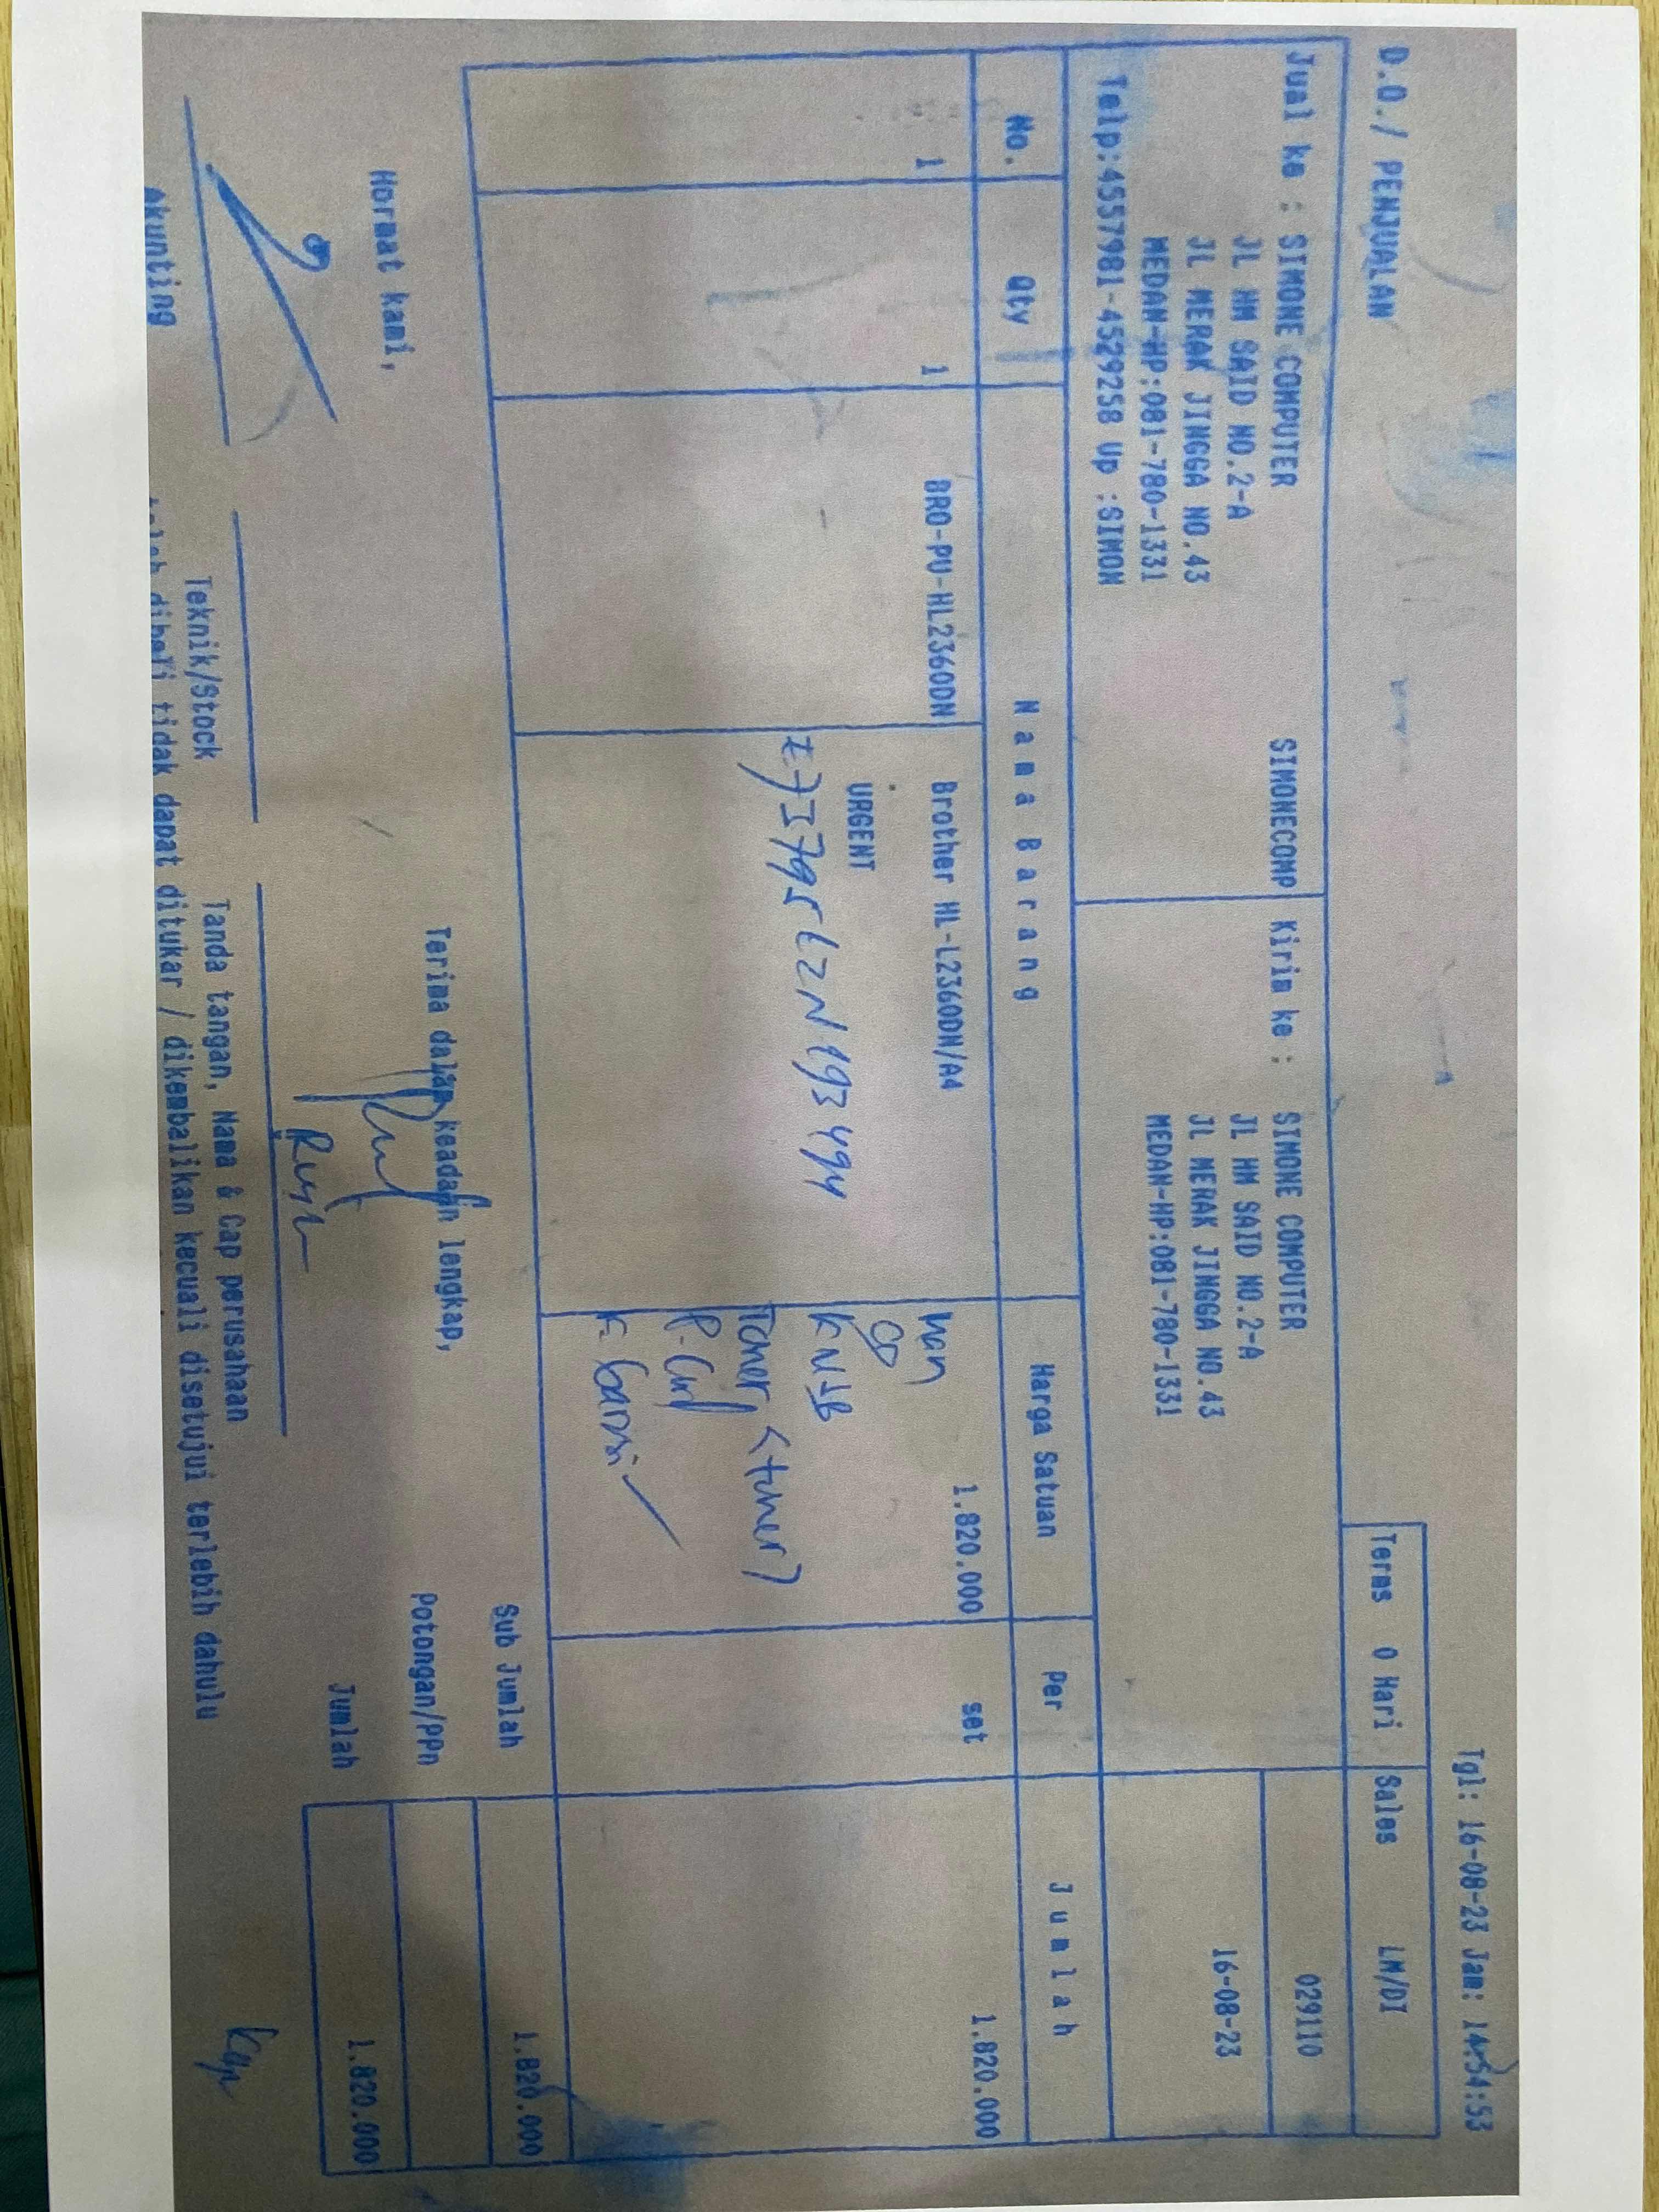 Tgl: 16-08-23 Jam: 14:54:53
D.O./ PENJUALAN
Terms 0 Hari Sales LM/DI
Jual ke : SIMONE COMPUTER SIMONECOMP Kirim ke : SIMONE COMPUTER 029110
JL HM SAID NO.2-A JL HM SAID NO.2-A
JL MERAK JINGGA NO.43 JL MERAK JINGGA NO.43 16-08-23
MEDAN-HP:081-780-1331 MEDAN-HP:081-780-1331
Telp:4557981-4529258 Up :SIMON
No. Qty Nama Barang Harga Satuan Per Jumlah
1 1 BRO-PU-HL2360DN Brother HL-L2360DN/A4 1.820.000 set 1.820.000
URGENT
Toner <toner>
K. Garansi
Sub Jumlah 1.820.000
Hormat kami, Terima dalam keadaan lengkap, Potongan/PPn
Jumlah 1.820.000
Akunting Teknik/Stock Tanda tangan, Nama & Cap perusahaan
telah dibeli tidak dapat ditukar / dikembalikan kecuali disetujui terlebih dahulu